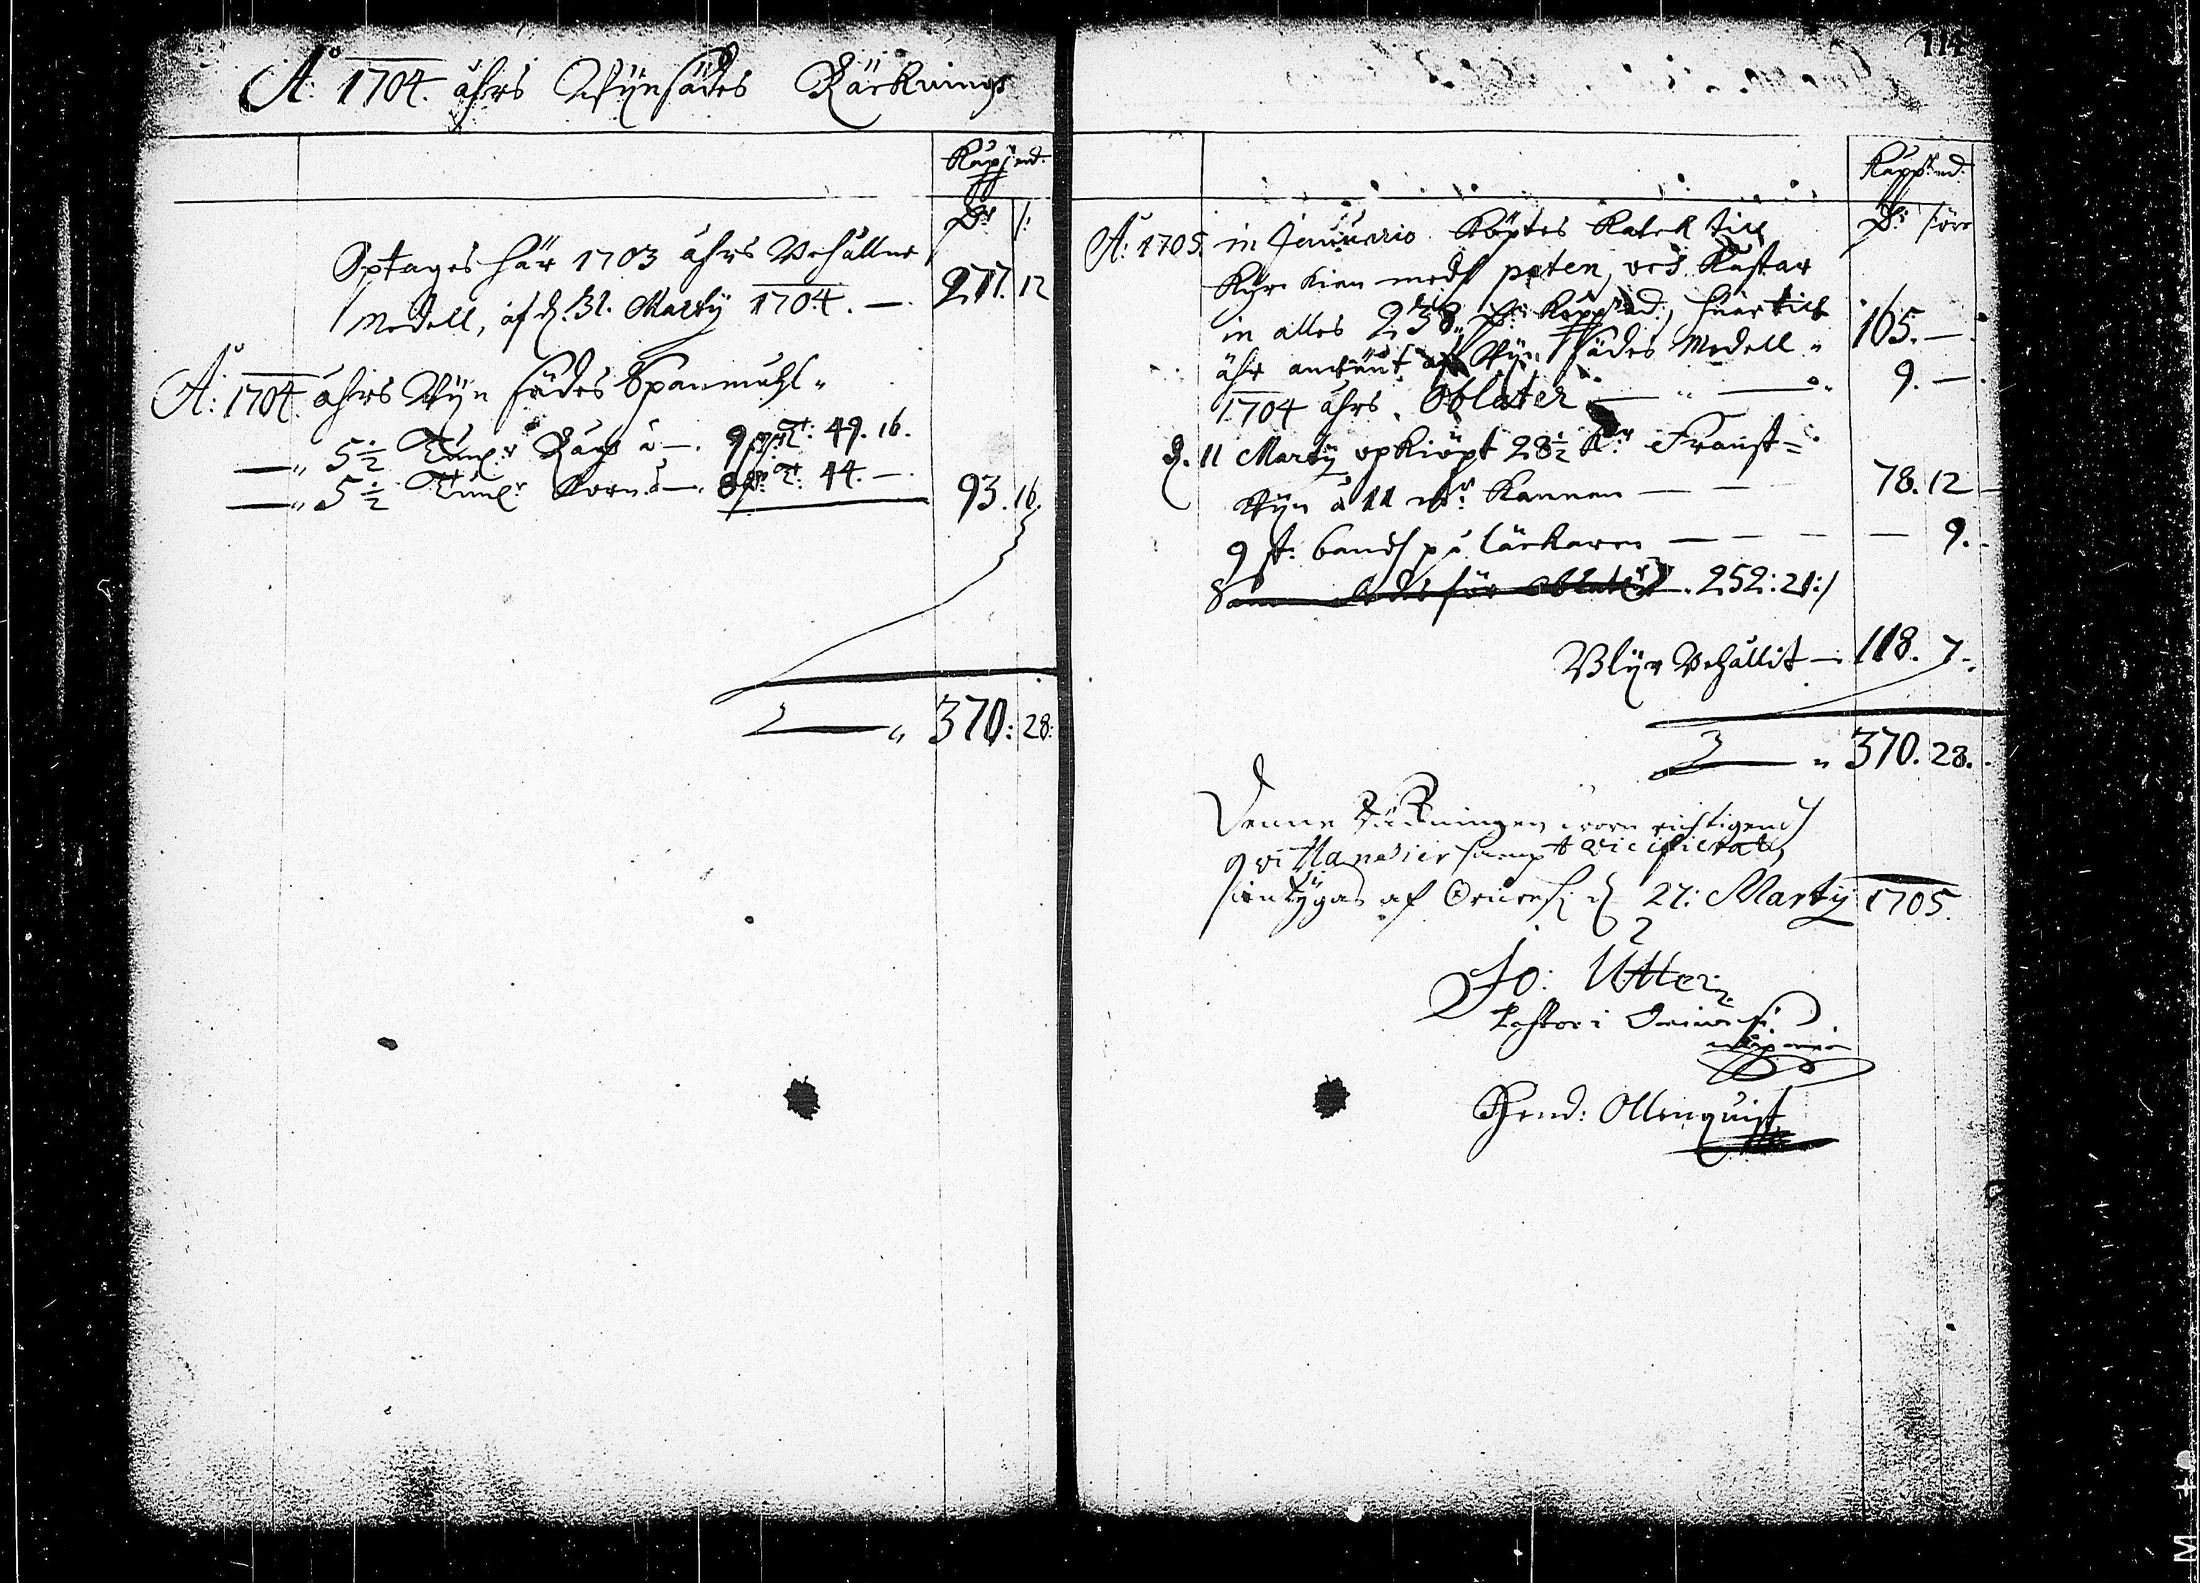 Aº: 1704. åhrs Wijnsädes Räcknings
Kåppmt.
Dr /:
Optages här 1703 åhrs Behållne
Medell, af d. 31. Martij 1704. — 277. 12
Aº: 1704. åhrs Wijn sädes Spanmåhl
— 5½ Tunr Råg à — 9 49. 16.
— 5½ Tunr Korn à — 8 44. — 93. 16.
370: 28:
114
Kåppmt.
Dr: /öre
Aº: 1705. in Januario Köptes Kalck till
Kyrckian medh paten,
in alles 238 Dr Koppmt, hwartill
åhr anwändt af Wijn sädes Medell 165. —
1704 åhrs Oblater — 9. —
d. 11 Martij opkiöpt 28½ Kr Franst=
Wijn à 11 mr Kannan — 78. 12
9 st: bandh på läckaren — 9.
för oblater 252: 21:/
Blijr Behållit — 118. 7.
370. 28.
Denne Räckningen wara richtigend
sampt
intygas af d 27: Martij 1705.
Jo: Utter
Pastor i
Hend: Ollenquist